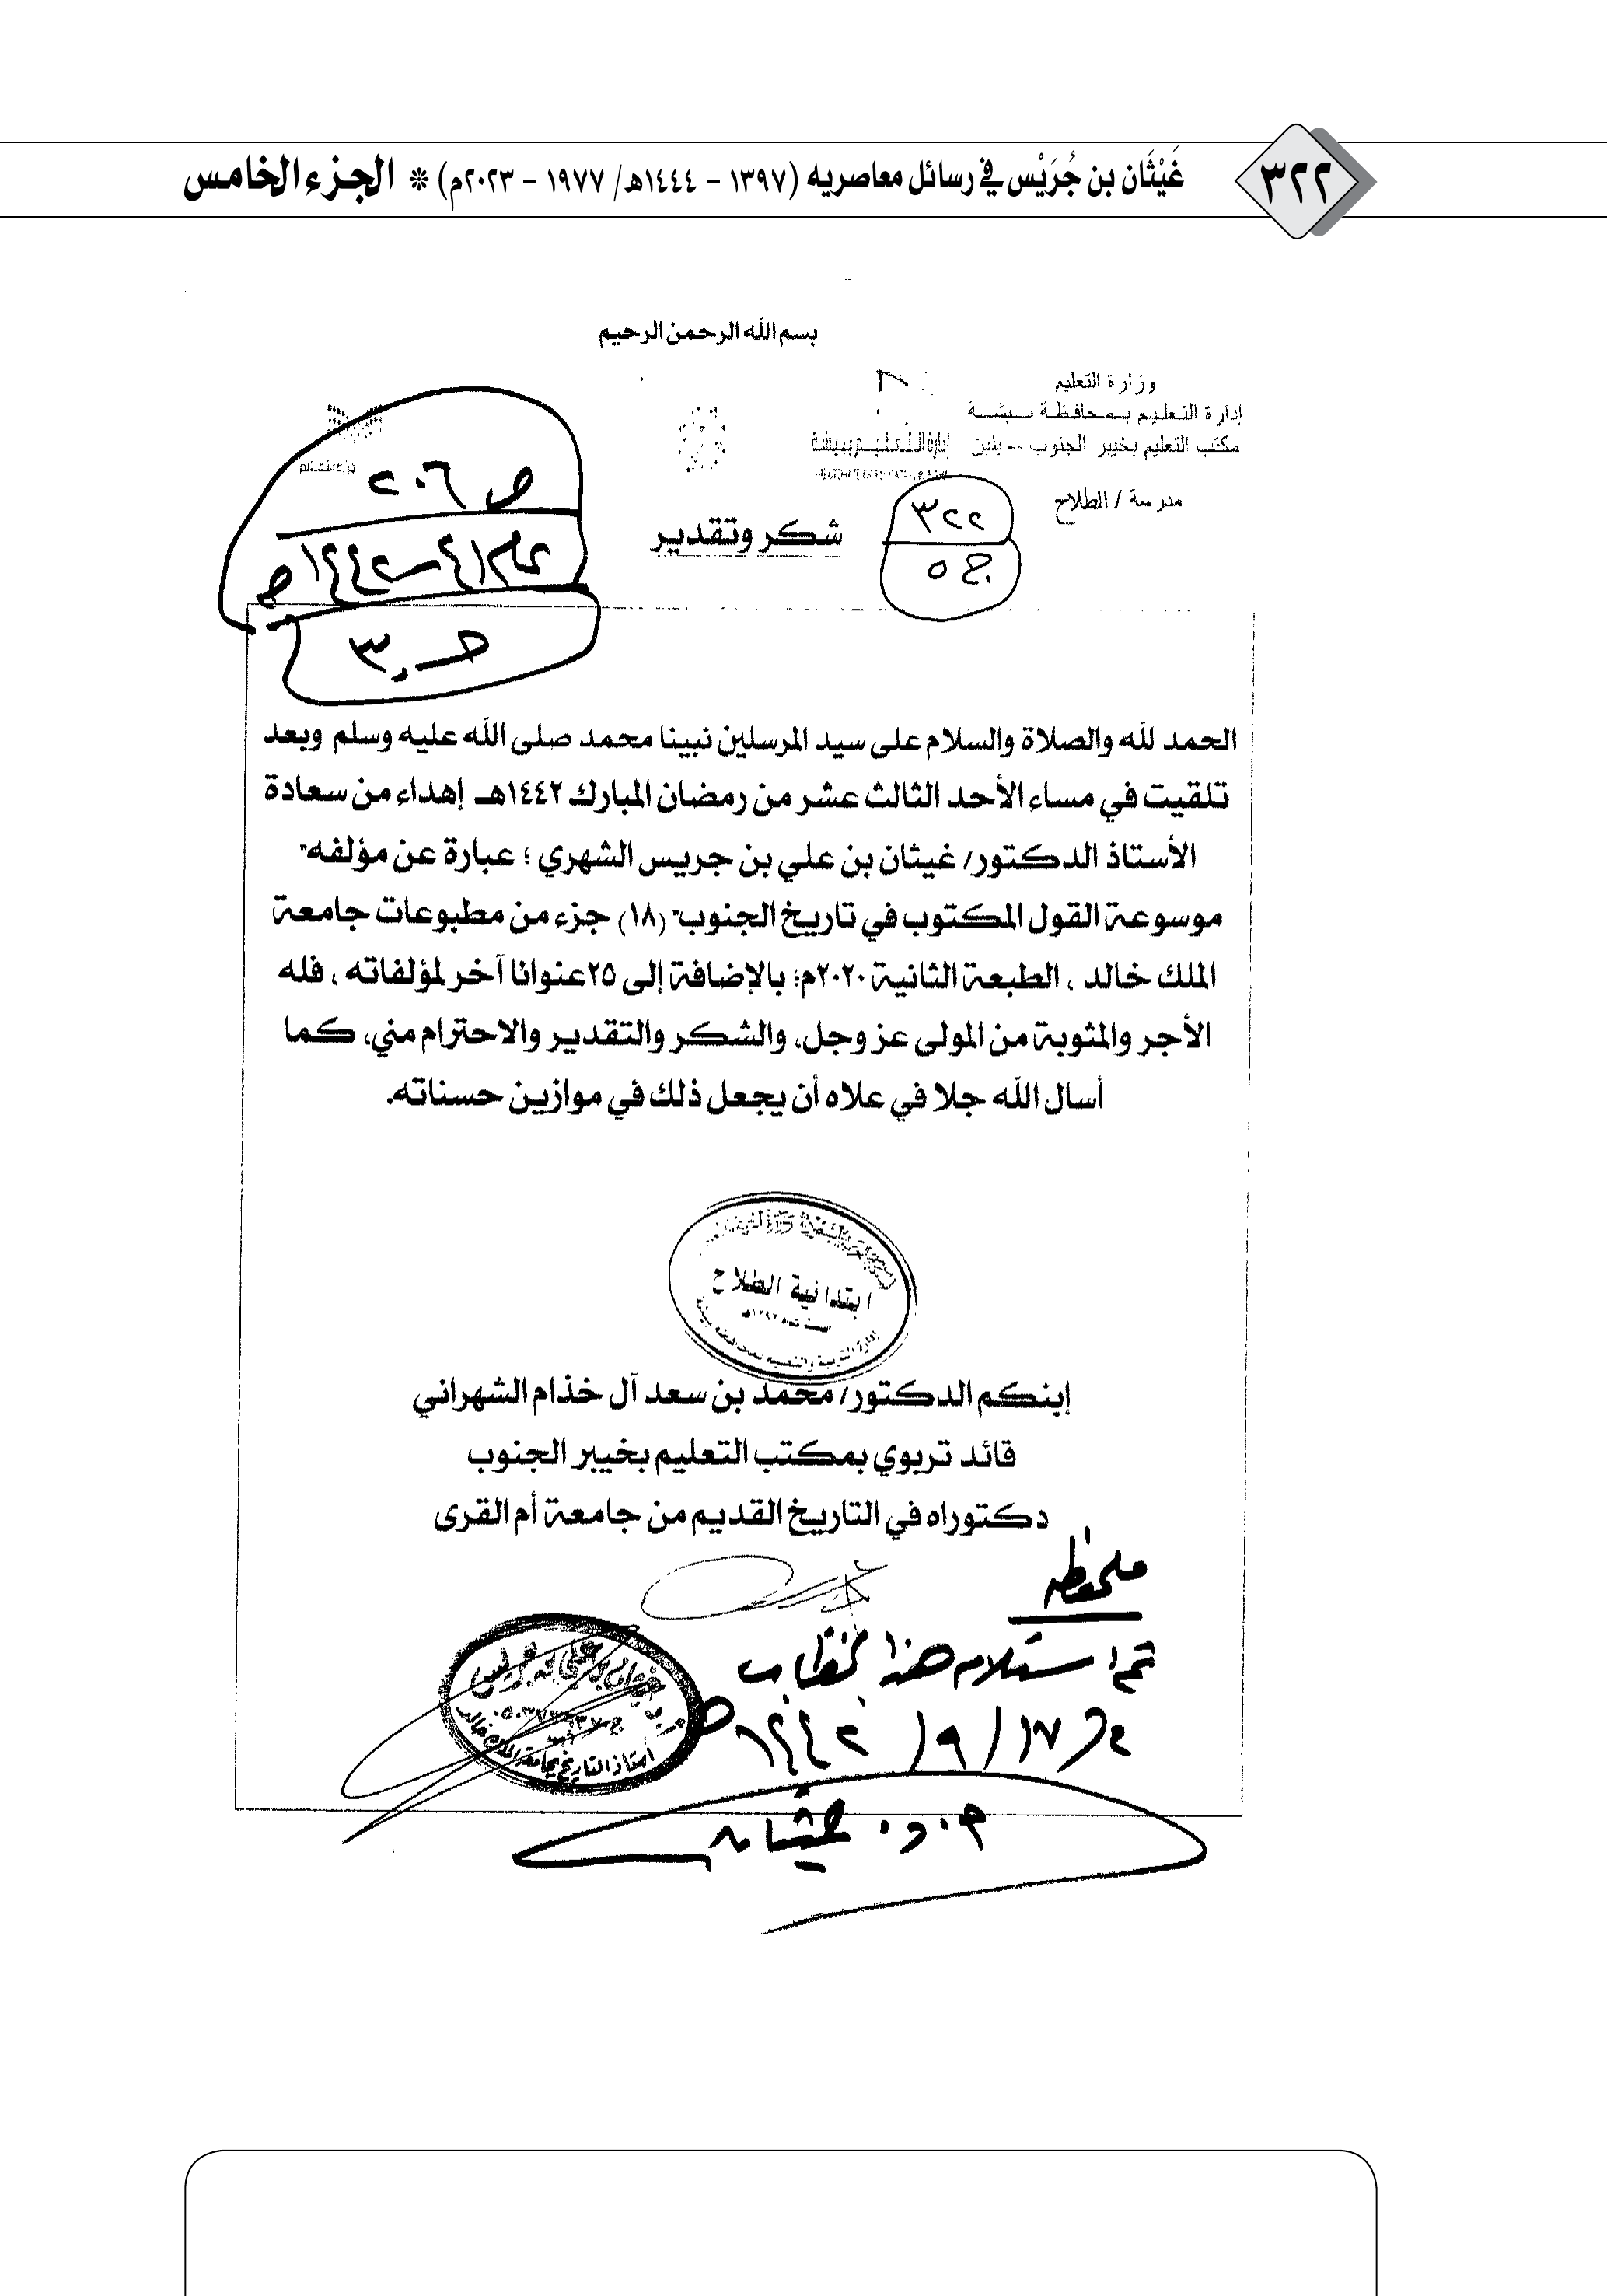 ٣٢٢
غَيْثَان بن جُرَيْس في رسائل معاصريه (١٣٩٧ - ١٤٤٤هـ/ ١٩٧٧ - ٢٠٢٣م) * الجزء الخامس
بسم الله الرحمن الرحيم
وزارة التعليم
إدارة التعليم بمحافظة بيشة
مكتب التعليم بخيبر الجنوب -- بنين
مدرسة / الطلاح
إدارة التعليم ببيشة
وزارة التعليم
ص ٢٠٦
عام ٤١-١٤٤٢هـ
حـ ٣
٣٢٢
ج ٥
شكر وتقدير
الحمد لله والصلاة والسلام على سيد المرسلين نبينا محمد صلى الله عليه وسلم وبعد
تلقيت في مساء الأحد الثالث عشر من رمضان المبارك ١٤٤٢هـ إهداء من سعادة
الأستاذ الدكتور/ غيثان بن علي بن جريس الشهري ؛ عبارة عن مؤلفه"
موسوعة القول المكتوب في تاريخ الجنوب" (١٨) جزء من مطبوعات جامعة
الملك خالد ، الطبعة الثانية ٢٠٢٠م؛ بالإضافة إلى ٢٥عنوانا آخر لمؤلفاته ، فله
الأجر والمثوبة من المولى عز وجل، والشكر والتقدير والاحترام مني، كما
أسال الله جلا في علاه أن يجعل ذلك في موازين حسناته.
ابتدائية الطلاح
إبنكم الدكتور/ محمد بن سعد آل خذام الشهراني
قائد تربوي بمكتب التعليم بخيبر الجنوب
دكتوراه في التاريخ القديم من جامعة أم القرى
ملحوظة
تم استلام هذا الخطاب
في ١٧ / ٩ / ١٤٤٢هـ
أ.د. غيثان
أ.د. غيثان بن علي بن جريس
أستاذ التاريخ بجامعة الملك خالد